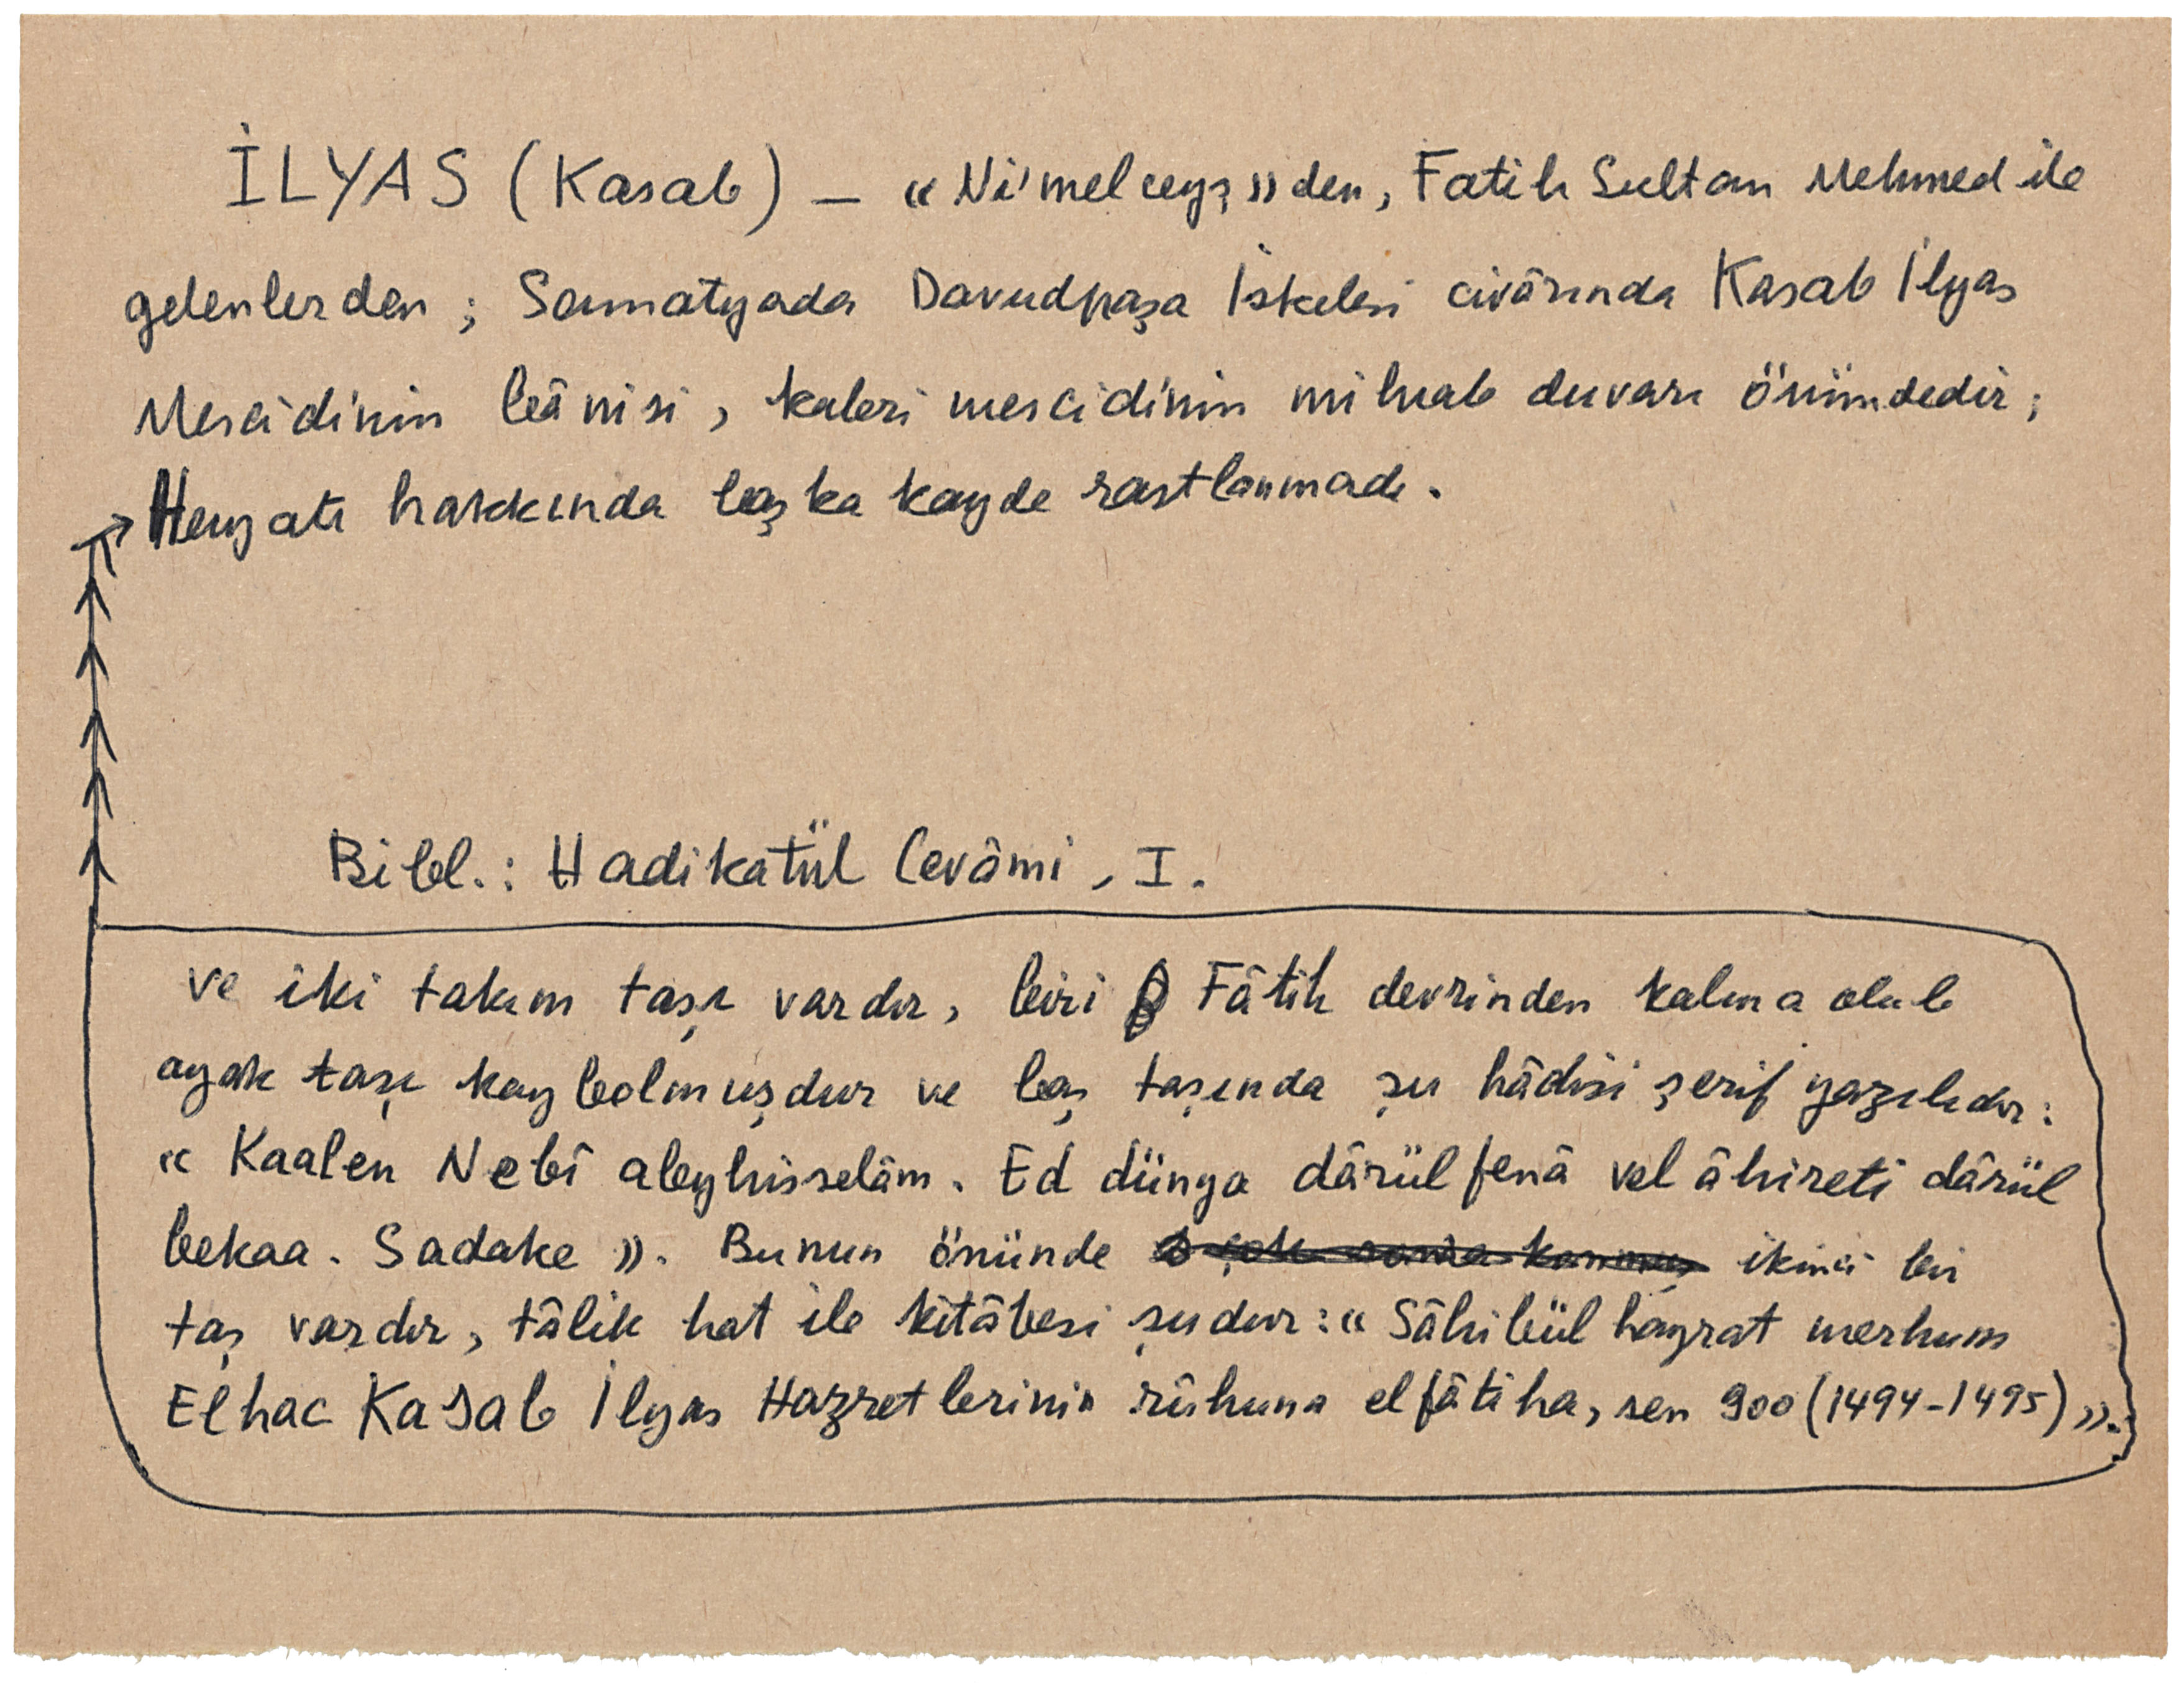 İLYAS (Kasab) — «Ni'melceyş»den, Fatih Sultan Mehmed ile
gelenlerden ; Samatyada Davudpaşa İskelesi civârında Kasab İlyas
Mescidinin bânisi, kabri mescidinin mihrab duvarı önündedir;
Heyatı hakkında başka kayde rastlanmadı.
Bibl.: Hadikatül Cevâmi, I.
ve iki takım taşı vardır, biri Fâtih devrinden kalma olub
ayak taşı kaybolmuşdur ve baş taşında şu hâdisi şerif yazılıdır:
« Kaalen Nebî aleyhisselâm. Ed dünya dârül fenâ vel âhireti dârül
bekaa. Sadake ». Bunun önünde ikinci bir
taş vardır, tâlik hat ile kitâbesi şudur: « Sâhibül hayrat merhum
Elhac Kasab İlyas Hazretlerinin rûhuna elfâtiha, sen 900 (1494-1495) ».